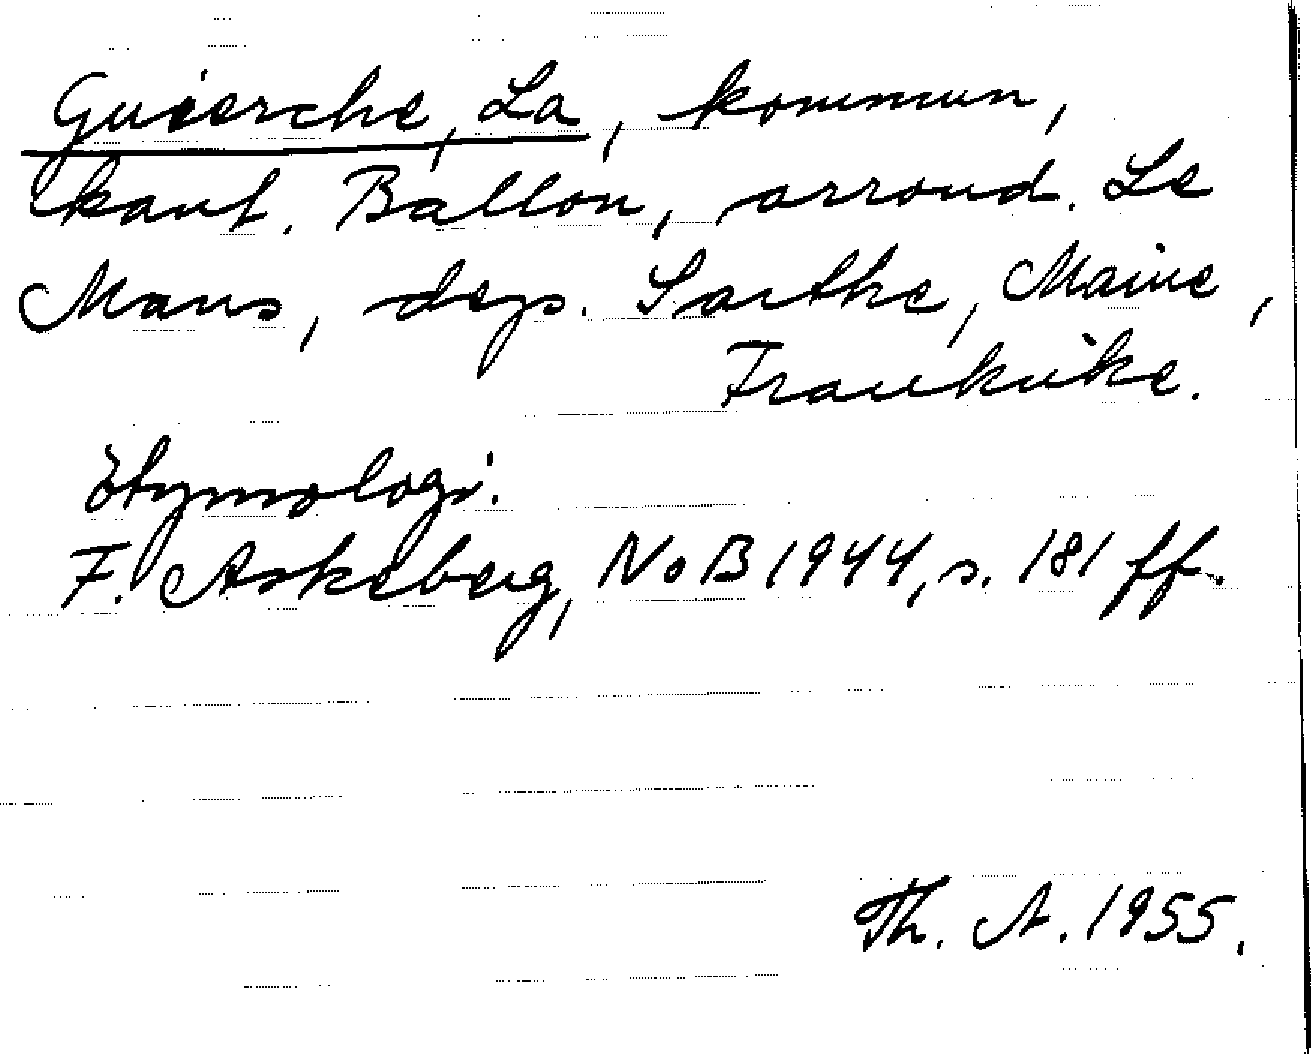 Guierche, La, kommun,
kant. Ballon, arrond. Le
Mans, dep. Sarthe, Maine,
Frankrike.
Etymologi.
F. Askeberg, NoB 1944, s. 181 ff.
Th. A. 1955.